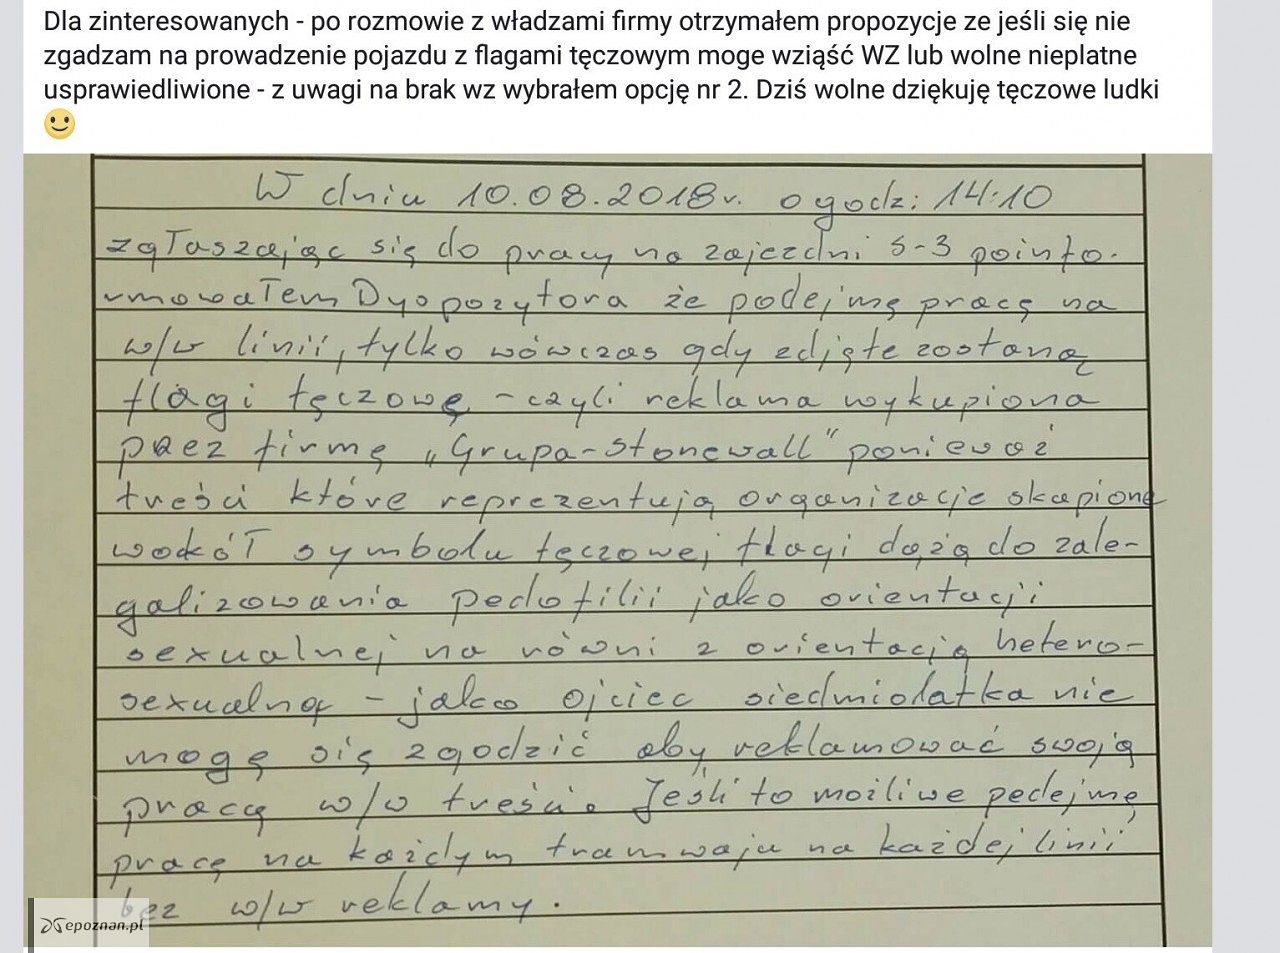 Dla zinteresowanych - po rozmowie z władzami firmy otrzymałem propozycje ze jeśli się nie
zgadzam na prowadzenie pojazdu z flagami tęczowym moge wziąść WZ lub wolne nieplatne
usprawiedliwione - z uwagi na brak wz wybrałem opcję nr 2. Dziś wolne dziękuję tęczowe ludki
🙂
W dniu 10.08.2018r. o godz: 14:10
zgłaszając się do pracy na zajezdni S-3 poinfo-
rmowałem Dyspozytora że podejmę pracę na
w/w linii, tylko wówczas gdy zdjęte zostaną
flagi tęczowe - czyli reklama wykupiona
przez firmę „Grupa-Stonewall" ponieważ
treści które reprezentują organizacje skupione
wokół symbolu tęczowej flagi dążą do zale-
galizowania pedofilii jako orientacji
sexualnej na równi z orientacją hetero-
sexualną - jako ojciec siedmiolatka nie
mogę się zgodzić aby reklamować swoją
pracą w/w treści. Jeśli to możliwe podejmę
pracę na każdym tramwaju na każdej linii
bez w/w reklamy.
epoznan.pl